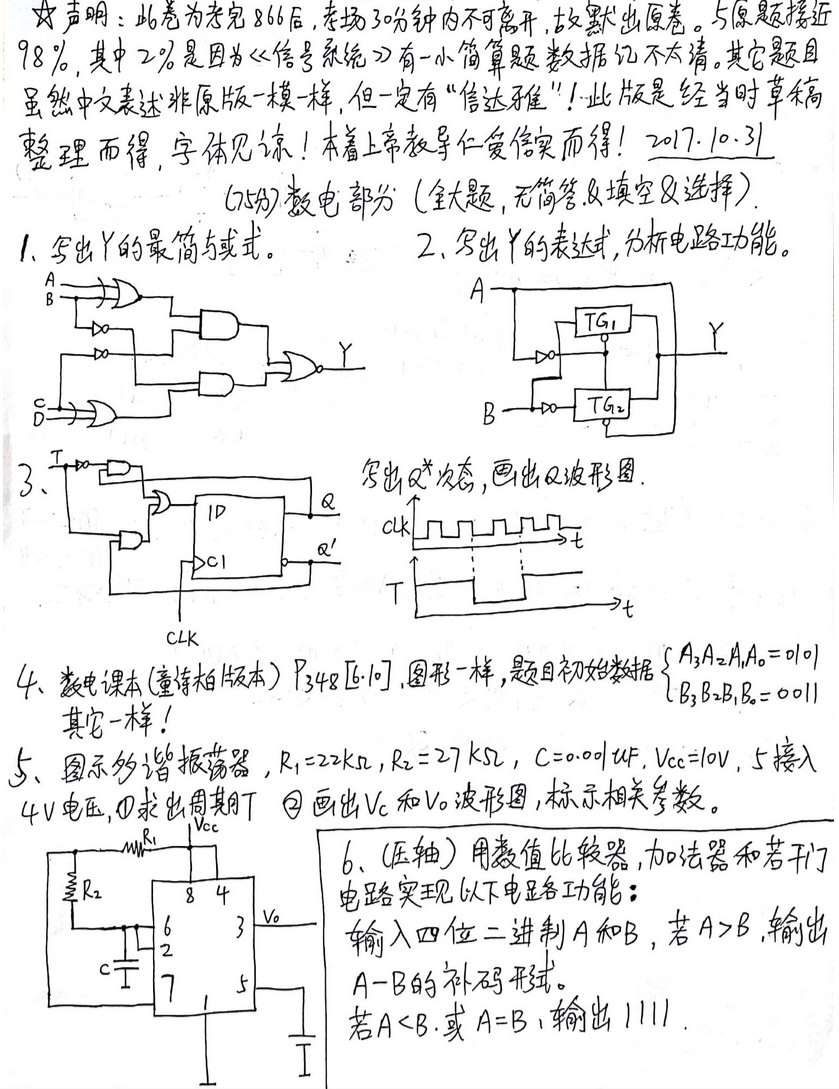 ☆声明：此卷为考完866后，考场30分钟内不可离开，故默出原卷。与原题接近
98%，其中2%是因为《信号系统》有一小简算题数据记不太清。其它题目
虽然中文表述非原版一模一样，但一定有“信达雅”！此版是经当时草稿
整理而得，字体见谅！本着上帝教导仁爱信实而得！ 2017.10.31
(75分)数电部分（全大题，无简答&填空&选择）.
1、写出Y的最简与或式。
2、写出Y的表达式，分析电路功能。
A
B
C
D
Y
A
B
TG1
TG2
Y
3、
T
1D
C1
Q
Q'
CLK
写出Q*次态，画出Q波形图.
CLK
t
T
t
4、数电课本(童诗白版本) P348[6.10]，图形一样，题目初始数据{A3A2A1A0=0101
B3B2B1B0=0011
其它一样！
5、图示多谐振荡器，R1=22KΩ，R2=27KΩ，C=0.001uF，Vcc=10V，5接入
4V电压，①求出周期T ②画出Vc和Vo波形图，标示相关参数。
Vcc
R1
R2
8 4
6
2
7
3
5
1
Vo
C
6、(压轴）用数值比较器，加法器和若干门
电路实现以下电路功能：
输入四位二进制A和B，若A>B，输出
A-B的补码形式。
若A<B.或A=B，输出1111.